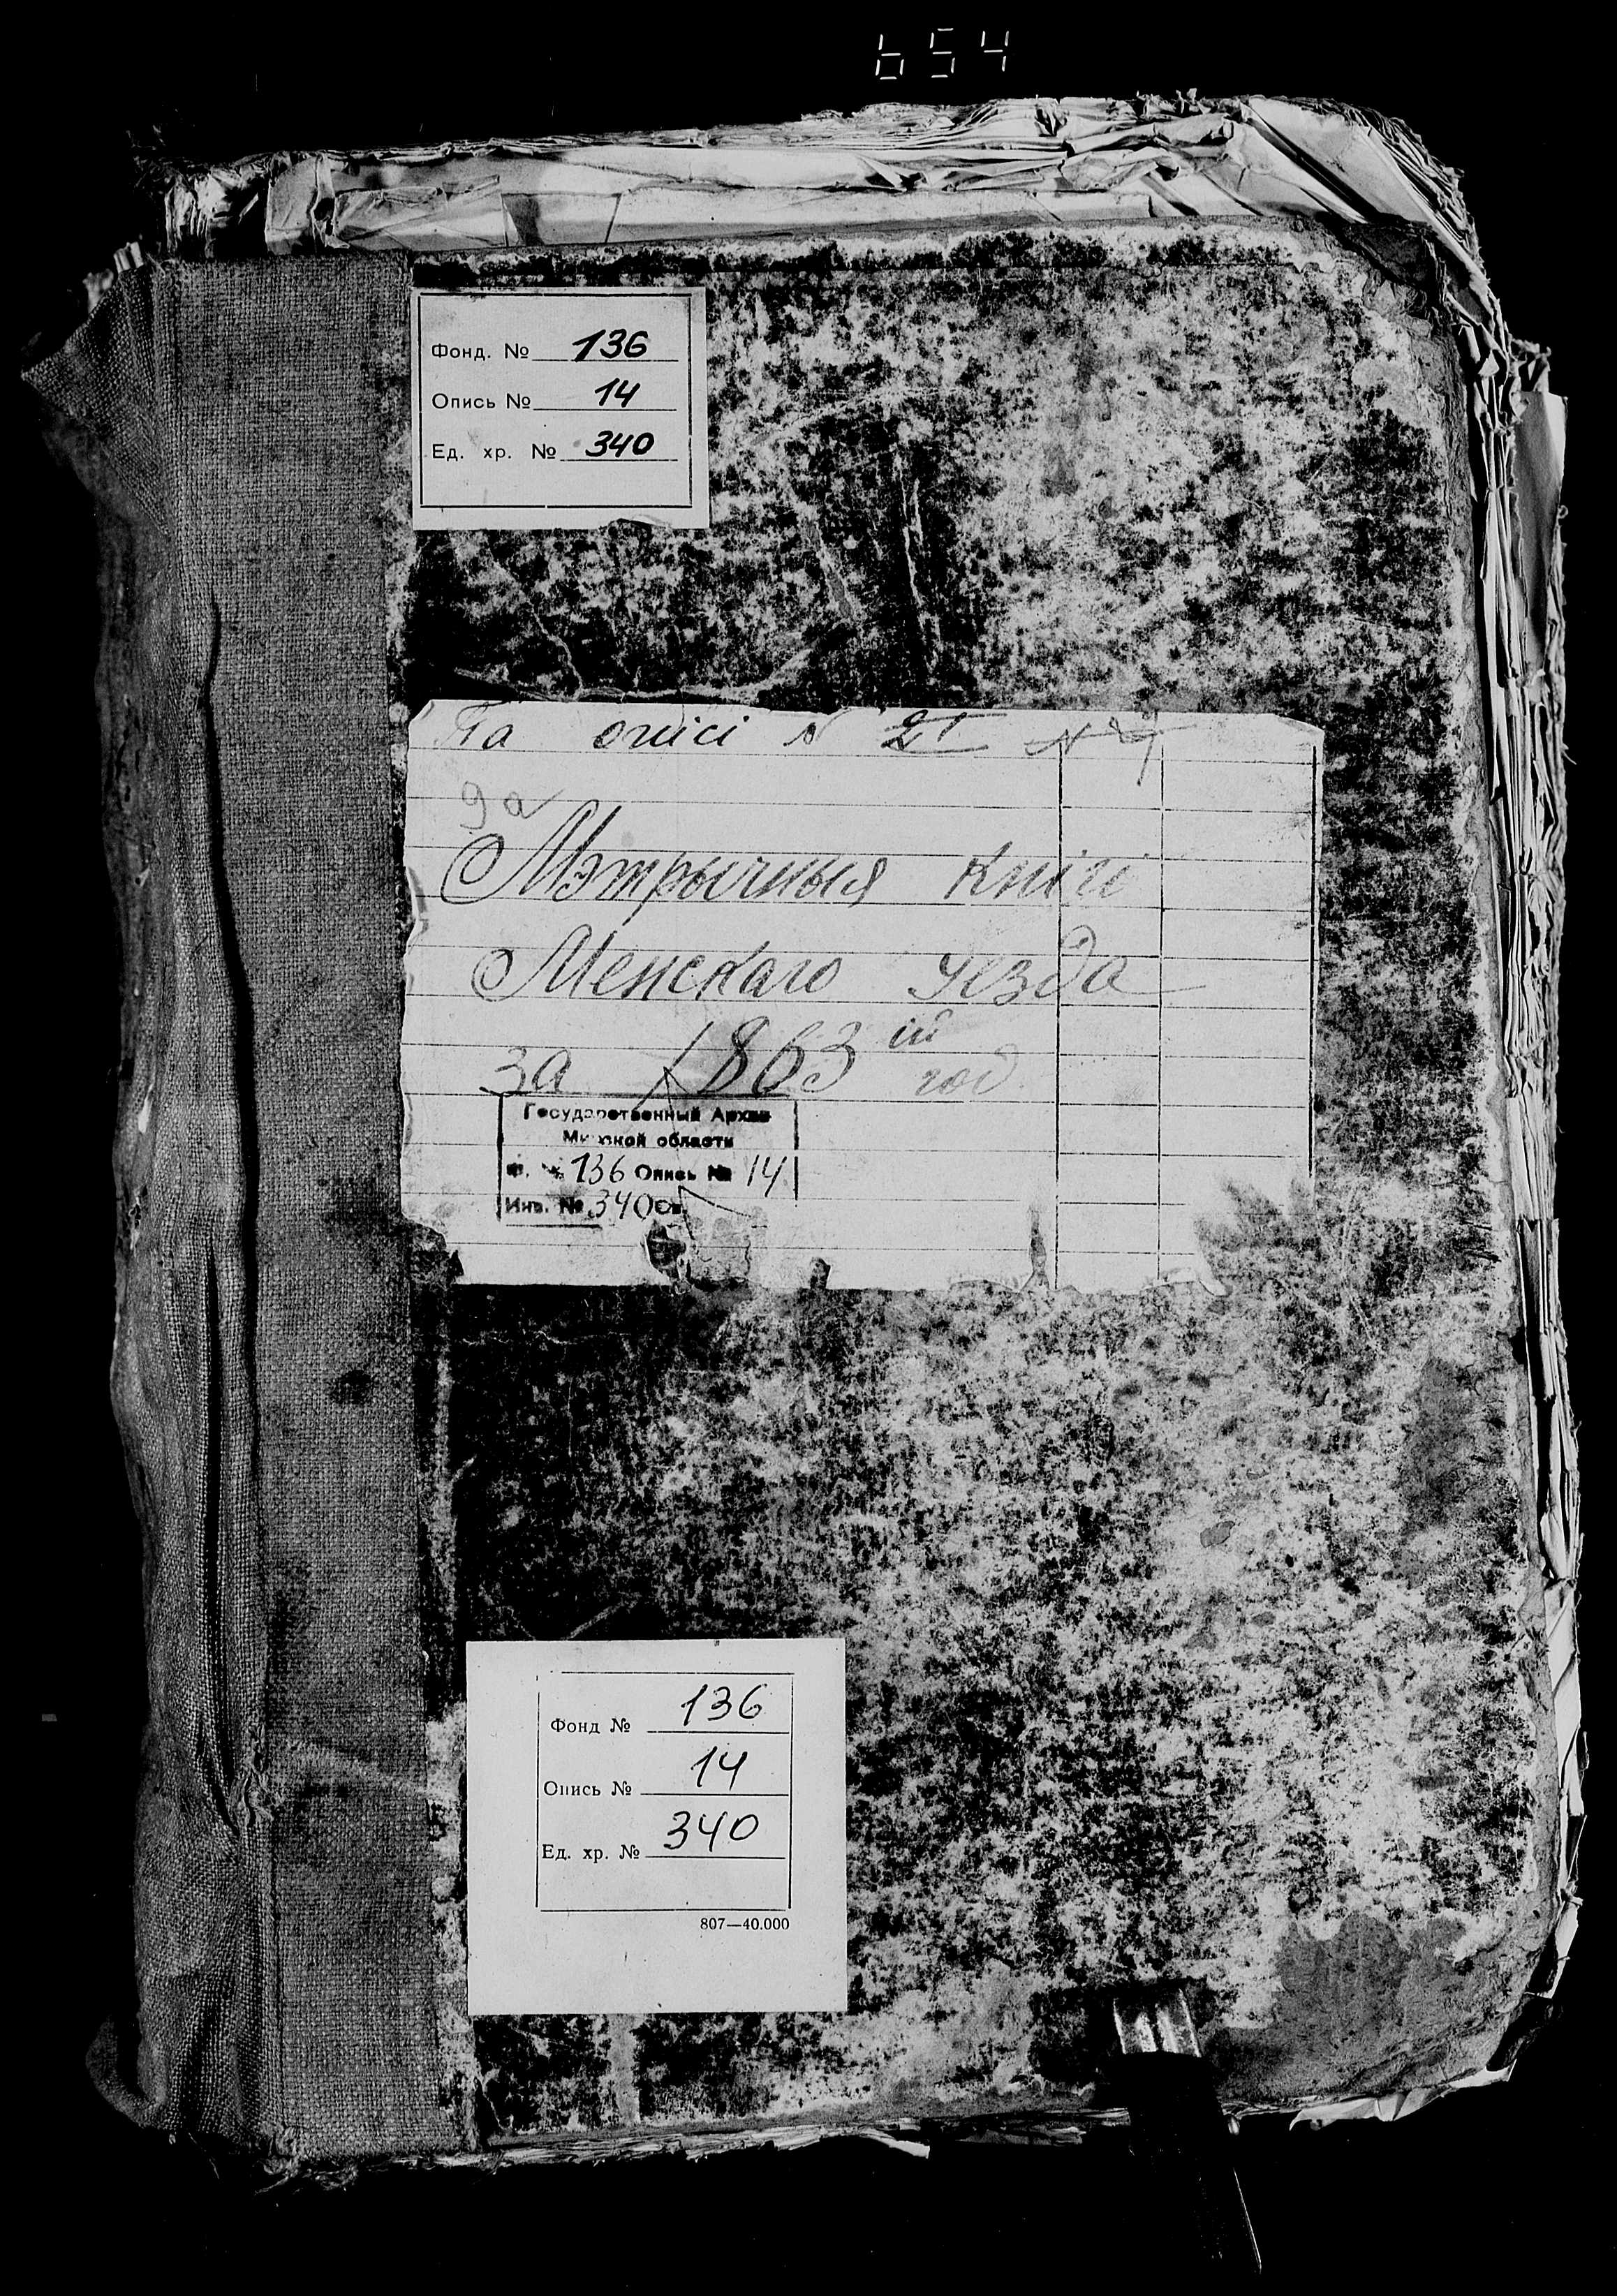 654
Фонд. № 136
Опись № 14
Ед. хр. № 340
Па опісі № 21
9а
Мэтрычныя кнігі
Менскаго уезда
за 1863 ій год
Государственный Архив
Минской области
Ф. № 136 Опись № 14
Инв. № 340 Св.
Фонд № 136
Опись № 14
Ед. хр. № 340
807—40.000